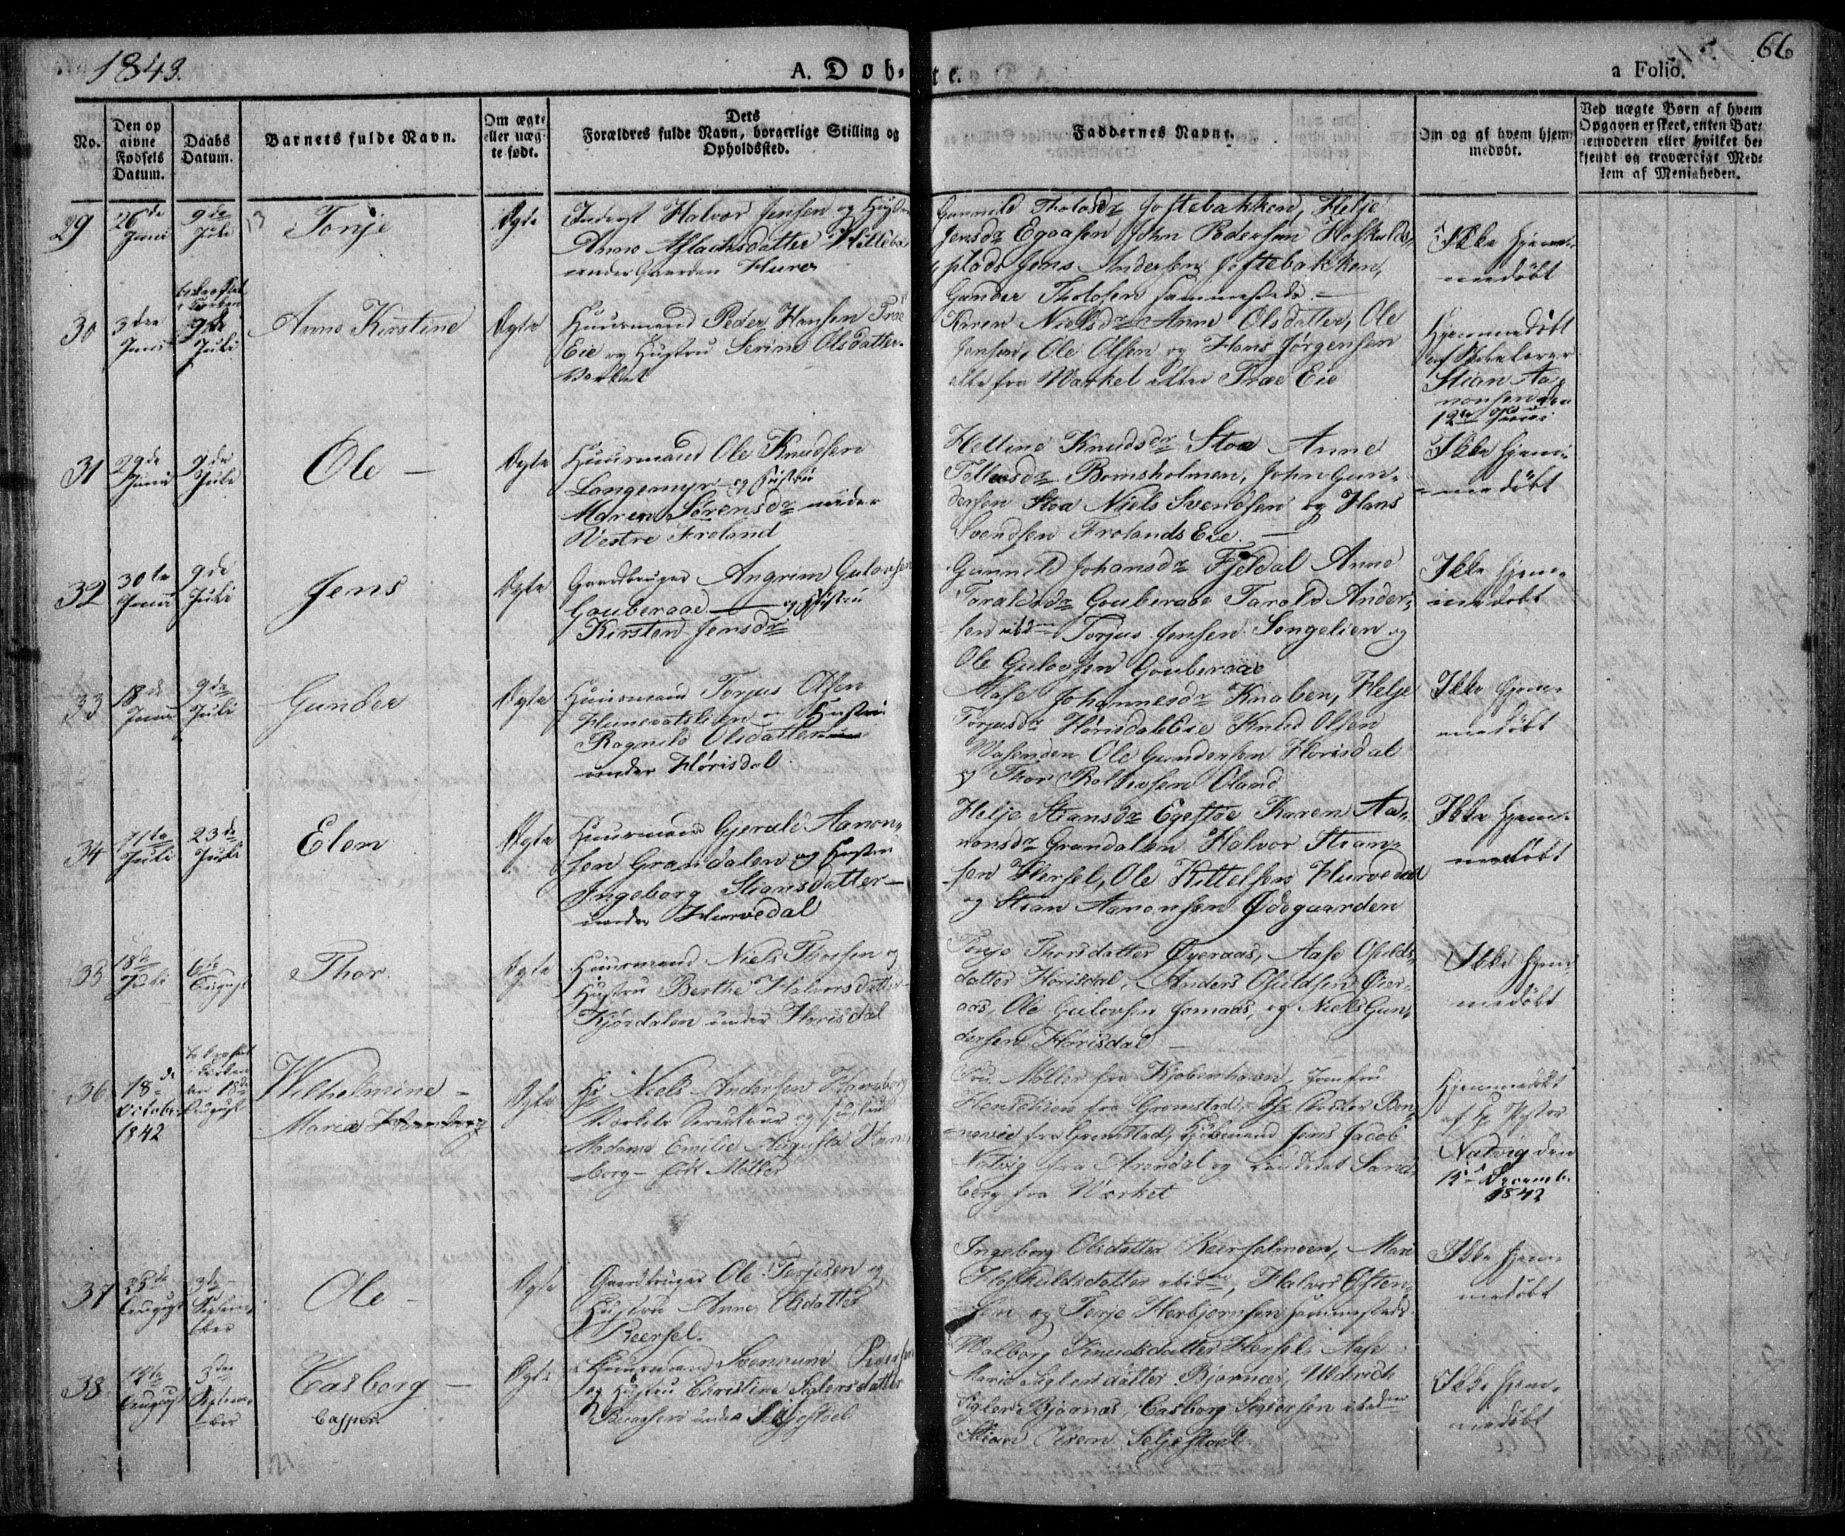 1843.
A. Døb- te.
a Folio.
66
No.
Den op
givne
Fødsels
Datum.
Daabs
Datum.
Barnets fulde Navn.
Om ægte
eller uæg-
te født.
Dets
Forældres fulde Navn, borgerlige Stilling og
Opholdssted.
Faddernes Navne.
Om og af hvem hjem-
medøbt.
Ved uægte Børn af hvem
Opgaven er skeet, enten Bar-
nemoderen eller hvilket be-
kjendt og troværdigt Med-
lem af Menigheden.
29
26de
Juni
9de
Juli
Tonje
Ægte
Inderst Halvor Jensen og Hustru
Anne Aslachsdatter
under Gaarden Hure
Gunnild Tholosdr Joftebakken, Helje
Jensdr Egaasen John Pedersen Hofkulds-
plads Jens Andersen Joftebakken,
Gunder Tholosen sammesteds.
Ikke hjem-
medøbt
30
3die
Juni
9de
Juli
Anne Kirstine
Ægte
Huusmand Peder Hansen Træ
Eie og Hustru Serine Olsdatter
Værket
Karen Nielsdr Anne Olsdatter, Ole
Jensen, Ole Olsen og Hans Jørgensen
alle fra Værket eller Træ Eie
Hjemmedøbt
af Skolelærer
Stian Aa-
nonsen den
12te Juni
31
29de
Juni
9de
Juli
Ole
Ægte
Huusmand Ole Knudsen
Langemyr og Hustru
Maren Sørensdr under
Vestre Froland
Helline Knudsdr Stoa Anne
Tellevsdr Bomsholmen, John Gun-
dersen Stoa Niels Svendsen og Hans
Svendsen Frolands Eie.
Ikke hjem-
medøbt
32
30te
Juni
9de
Juli
Jens
Ægte
Gaardbruger Angrim Gulovsen
Gouberaae og Hustru
Kirsten Jensdr
Gunnild Johansdr Fjeldal Anne
Taraldsdr Gouberaae Tarald Ander-
sen ibdm Torjus Jensen Songelien og
Ole Gulovsen Gouberaae
Ikke hjem-
medøbt
33
18de
Juni
9de
Juli
Gunder
Ægte
Huusmand Torjus Olsen
og Hustru
Ragnild Olsdatter
under Hørisdal.
Aase Johannesdr Knaben, Helje
Torjusdr Hørisdals Eie Knud Olsen
Vasenden Ole Gundersen Hørisdal
og Thor Oland
Ikke hjem-
medøbt
34
11te
Juli
23de
Juli
Elen
Ægte
Huusmand Gjerulf Aanon-
sen Grandalen og Hustru
Ingeborg Stiansdatter
under Hurvedal
Helje Stiansdr Egestøe Karen Aa-
nonsdr Grandalen Halvor Stian-
sen Hersel, Ole Kittelsen Hurvedal
og Stian Aanonsen Ødegaarden
Ikke hjem-
medøbt
35
18de
Juli
6te
August
Thor.
Ægte
Huusmand Niels Thorsen og
Hustru Berthe Halvorsdatter
Kjørdalen under Horisdal
Tonje Thorsdatter Øyeraas, Aase Osulds-
datter Horisdal, Anders Osuldsen Øier-
aas, Ole Gulovsen Jomaas, og Niels Gun-
dersen Hørisdal
Ikke hjem-
medøbt
36
18de
October
1842
August
Wilhelmine
Maria Hamborg
Ægte
Hr Niels Andersen Hamborg
Værkets og Hustru
Madame Emilie Augusta Ham-
borg født Møller
Fru Møller fra Kjøbenhavn, Jomfru
Henschien fra Gromstad,
fra Gromstad, Kjøbmand Jens Jacob
Natvig fra Arendal og Sand-
berg fra Værket
Hjemmedøbt
af Hr Pastor
Natvig den
15de Decemb.
1842
37
August
3die
Septem-
ber
Ole
Ægte
Gaardbruger Ole Terjesen og
Hustru Anne Olsdatter
Reersel.
Ingeborg Olsdatter Reerselmoen, Mari
Hofkuldsdatter ibidm, Halvor Osten-
sen og Terje Herbjørnsen sammesteds.
Ikke hjem-
medøbt
38
August
3die
Septem-
ber
Casborg
Casper.
Ægte
Huusmand Svennum Pedersen
og Hustru Christine Siglersdatter
under
Walborg Knudsdatter Hersel, Aase
Marie Siglersdatter Bjørnaes, Uldrich
Sigler Bjørnæs, Casborg Siglersen ibidm
Seljestoel
Ikke hjem-
medøbt